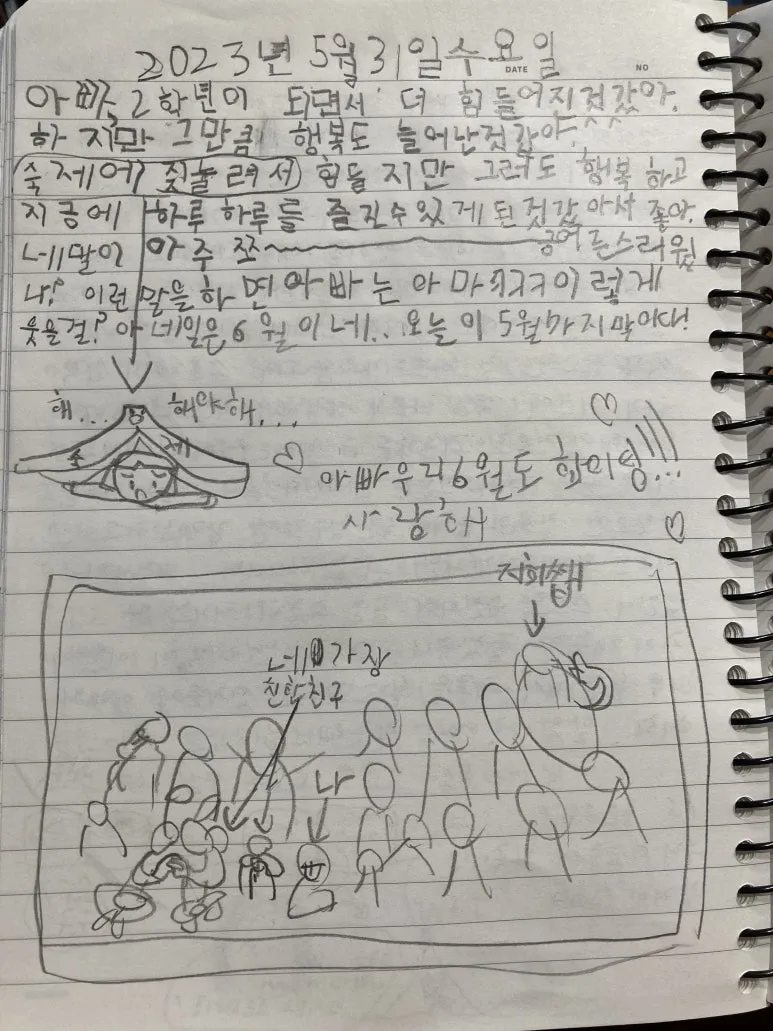 2023년 5월 31일 수요일
DATE NO
아빠, 2학년이 되면서 더 힘들어지것 같아.
하지만 그만큼 행복도 늘어난것 같아.
숙제에 짓눌려서 힘들지만 그려도 행복하고
지금에 하루하루를 즐긴수있게 된것같아서 좋아.
네말이 아주 쪼~ 긍어른스러웠
나? 이런 말을하면 아빠는 아마 ㅋㅋㅋ 이렇게
웃을걸? 아 네일은 6월이네... 오늘이 5월 마지막이다!
해... 해야해....
숙 제
아빠 우리 6월도 화이팅!!!
사랑해
지희쌤
네 가장
친한친구
나